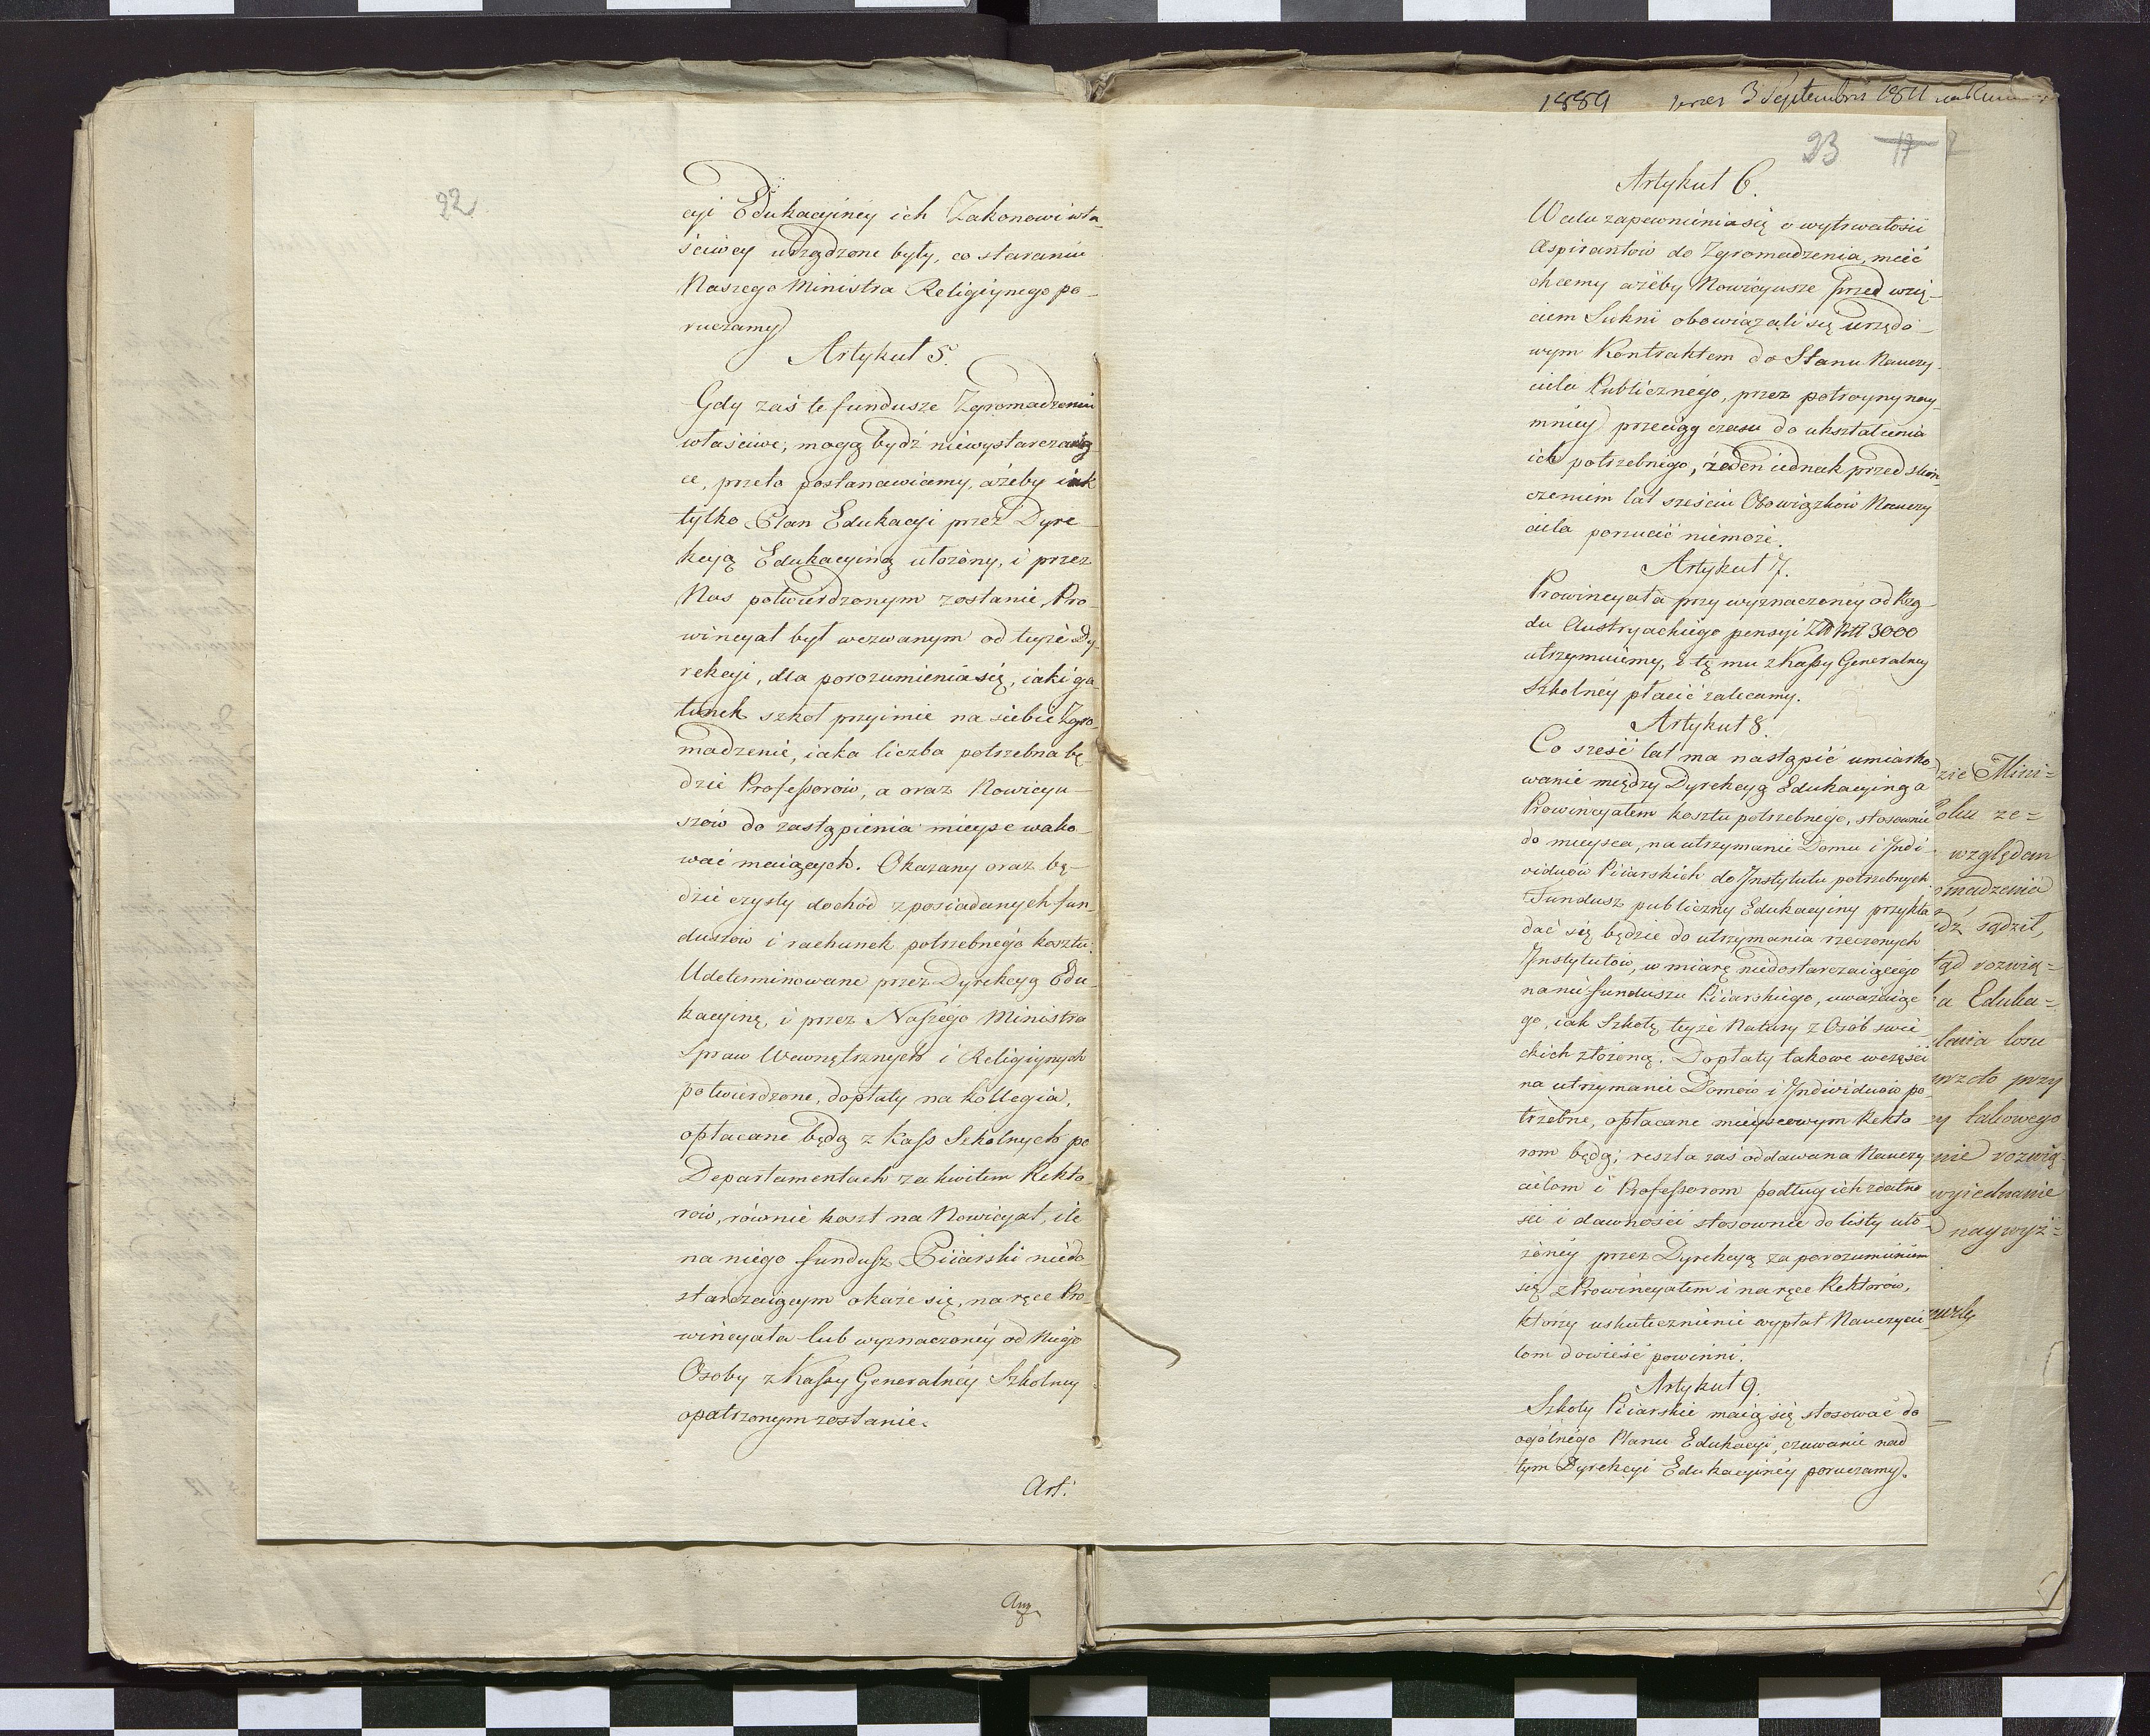 22
cyi Edukacyiney ich Zakonowi wła-
ściwey urządzone były, co staraniu
Naszego Ministra Religiynego po-
ruczamy
Artykuł 5.
Gdy zaś te fundusze Zgromadzeniu
właściwe, mogą bydź niewystarczaią-
ce, przeto postanawiamy, ażeby iak
tylko Plan Edukacyi przez Dyre
kcyą Edukacyiną ułożony, i przez
Nas potwierdzonym zostanie, Pro-
wincyał był wezwanym od teyże Dy-
rekcyi, dla porozumienia się, iaki ga-
tunek szkoł przyimie na siebie Zgro-
madzenie, iaka liczba potrzebna bę-
dzie Professorów, a oraz Nowicyu-
szów do zastąpienia mieysc wako-
wać maiących. Okazany oraz bę-
dzie czysty dochód z posiadanych fun-
duszów i rachunek potrzebnego kosztu:
Udeterminowane przez Dyrekcyą Edu-
kacyiną, i przez Naszego Ministra
Spraw Wewnętrznych i Religiynych
potwierdzone, dopłaty na kollegia,
opłacane będą z kass Szkolnych po
Departamentach za kwitem Rekto-
rów, równie koszt na Nowicyat, ile
na niego fundusz Piiarski niedo
starczaiącym okaże się, na ręce Pro-
wincyała lub wyznaczoney od Niego
Osoby z Kassy Generalney Szkolney
opatrzonym zostanie.
Art:
1889 przez 3 Septembris 1811
23 17
Artykuł 6.
W celu zapewnienia się o wytrwałości
Aspirantów do Zgromadzenia, mieć
chcemy ażeby Nowicyusze przed wzię-
ciem Sukni obowiązali się urzędo-
wym Kontraktem do Stanu Nauczy-
ciela Publicznego, przez potroyny nay-
mniey przeciąg czasu do ukształcenia
ich potrzebnego, żaden iednak przed skoń-
czeniem lat sześciu Obowiązków Nauczy
ciela porzucić niemoże.
Artykuł 7.
Prowincyała przy wyznaczoney od Rzą-
du Austryackiego pensyi 3000
utrzymuiemy, i tę mu z Kassy Generalney
Szkolney płacić zalecamy.
Artykuł 8.
Co sześć lat ma nastąpić umiarko
wanie między Dyrekcyą Edukacyiną a
Prowincyałem kosztu potrzebnego, stosownie
do mieysca, na utrzymanie Domu i Indi-
viduów Piiarskich do Instytutu potrzebnych
Fundusz publiczny Edukacyiny przykła
dać się będzie do utrzymania rzeczonych
Instytutów, w miarę niedostarczaiącego
na nie funduszu Piiarskiego, uważaiąc
go, iak Szkołę teyże Natury z Osób świe
ckich złożoną. Dopłaty takowe w części
na utrzymanie Domów i Individuów po
trzebne, opłacane mieyscowym Rekto
rom będą; reszta zaś oddawana Nauczy
cielom i Professorom podług ich zdatno
ści i dawności stosownie do listy uło
żoney przez Dyrekcyą za porozumieniem
się z Prowincyałem i na ręce Rektorów,
którzy uskutecznienie wypłat Nauczycie
lom dowieść powinni.
Artykuł 9.
Szkoły Piiarskie maią się stosować do
ogólnego Planu Edukacyi, czuwanie nad
tym Dyrekcyi Edukacyiney poruczamy.
Mini=
ze=
względem
omadzenia
sądził,
rozwią=
a Eduka=
losu
przy
takowego
rozwią-
wyiednanie
naywyż=